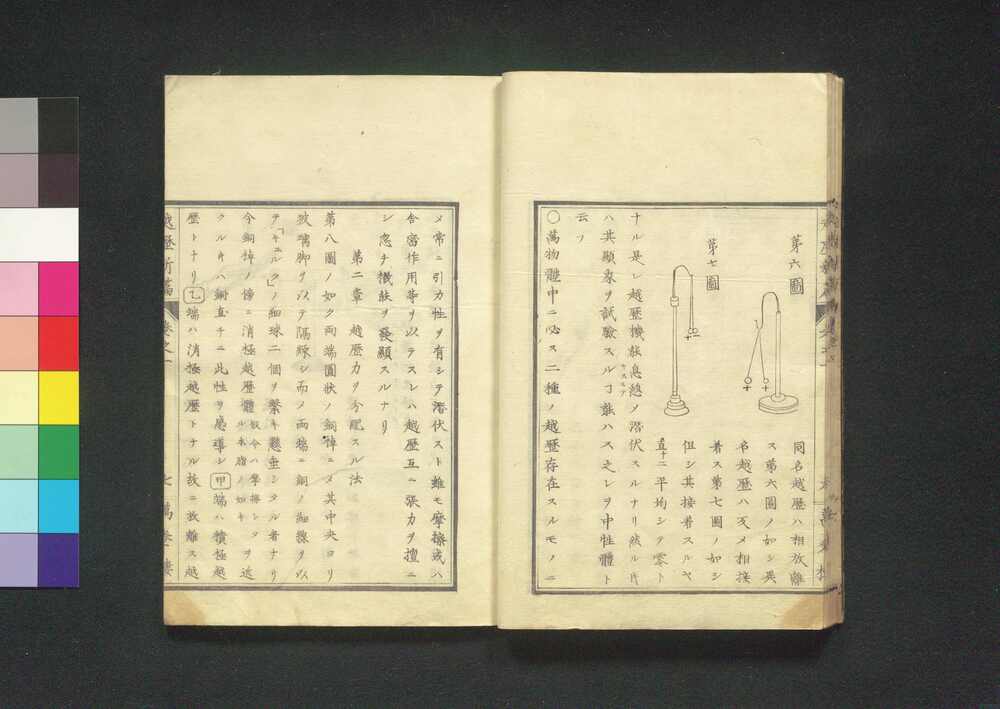 第六圖
同名越歴ハ相放離
ス第六圖ノ如シ異
名越歴ハ反メ相接
着ス第七圖ノ如シ
但シ其接着スルヤ
直ニ平均シテ零ト
第七圖
ナル是レ越歴機能息熄ノ潜伏スルナリ然ル片
ハ其顕象ヲ試驗スルヿ能ハス之レヲ中性體ト
云フ
〇萬物體中ニ必ス二種ノ越歴存在スルモノニ
メ常ニ引力性ヲ有シテ潜伏スト雖モ摩擦或ハ
舎密作用等ヲ以テスレハ越歴互ニ張力ヲ擅ニ
シ忽チ機能ヲ發顕スルナリ
第二章 越歴力ヲ分配スル法
第八圖ノ如ク両端圓状ノ銅棹ニメ其中央ヨリ
玻璃脚ヲ以テ隔縁シ而メ両端ニ銅ノ細線ヲ以
テ「キュルク」ノ細球二個ヲ繋キ懸垂シタル者ナリ
今銅棹ノ傍ニ消極越歴體假令ハ摩擦シタル木脂ノ如キヲ送
クルキハ銅直チニ此性ヲ感導シ甲端ハ積極越
歴トナリ乙端ハ消極越歴トナル故ニ放離ス越